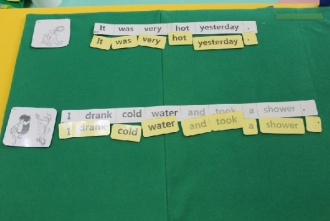 It was very hot yesterday .
It was very hot yesterday .
I drank cold water and took a shower .
I drank cold water and took a shower .